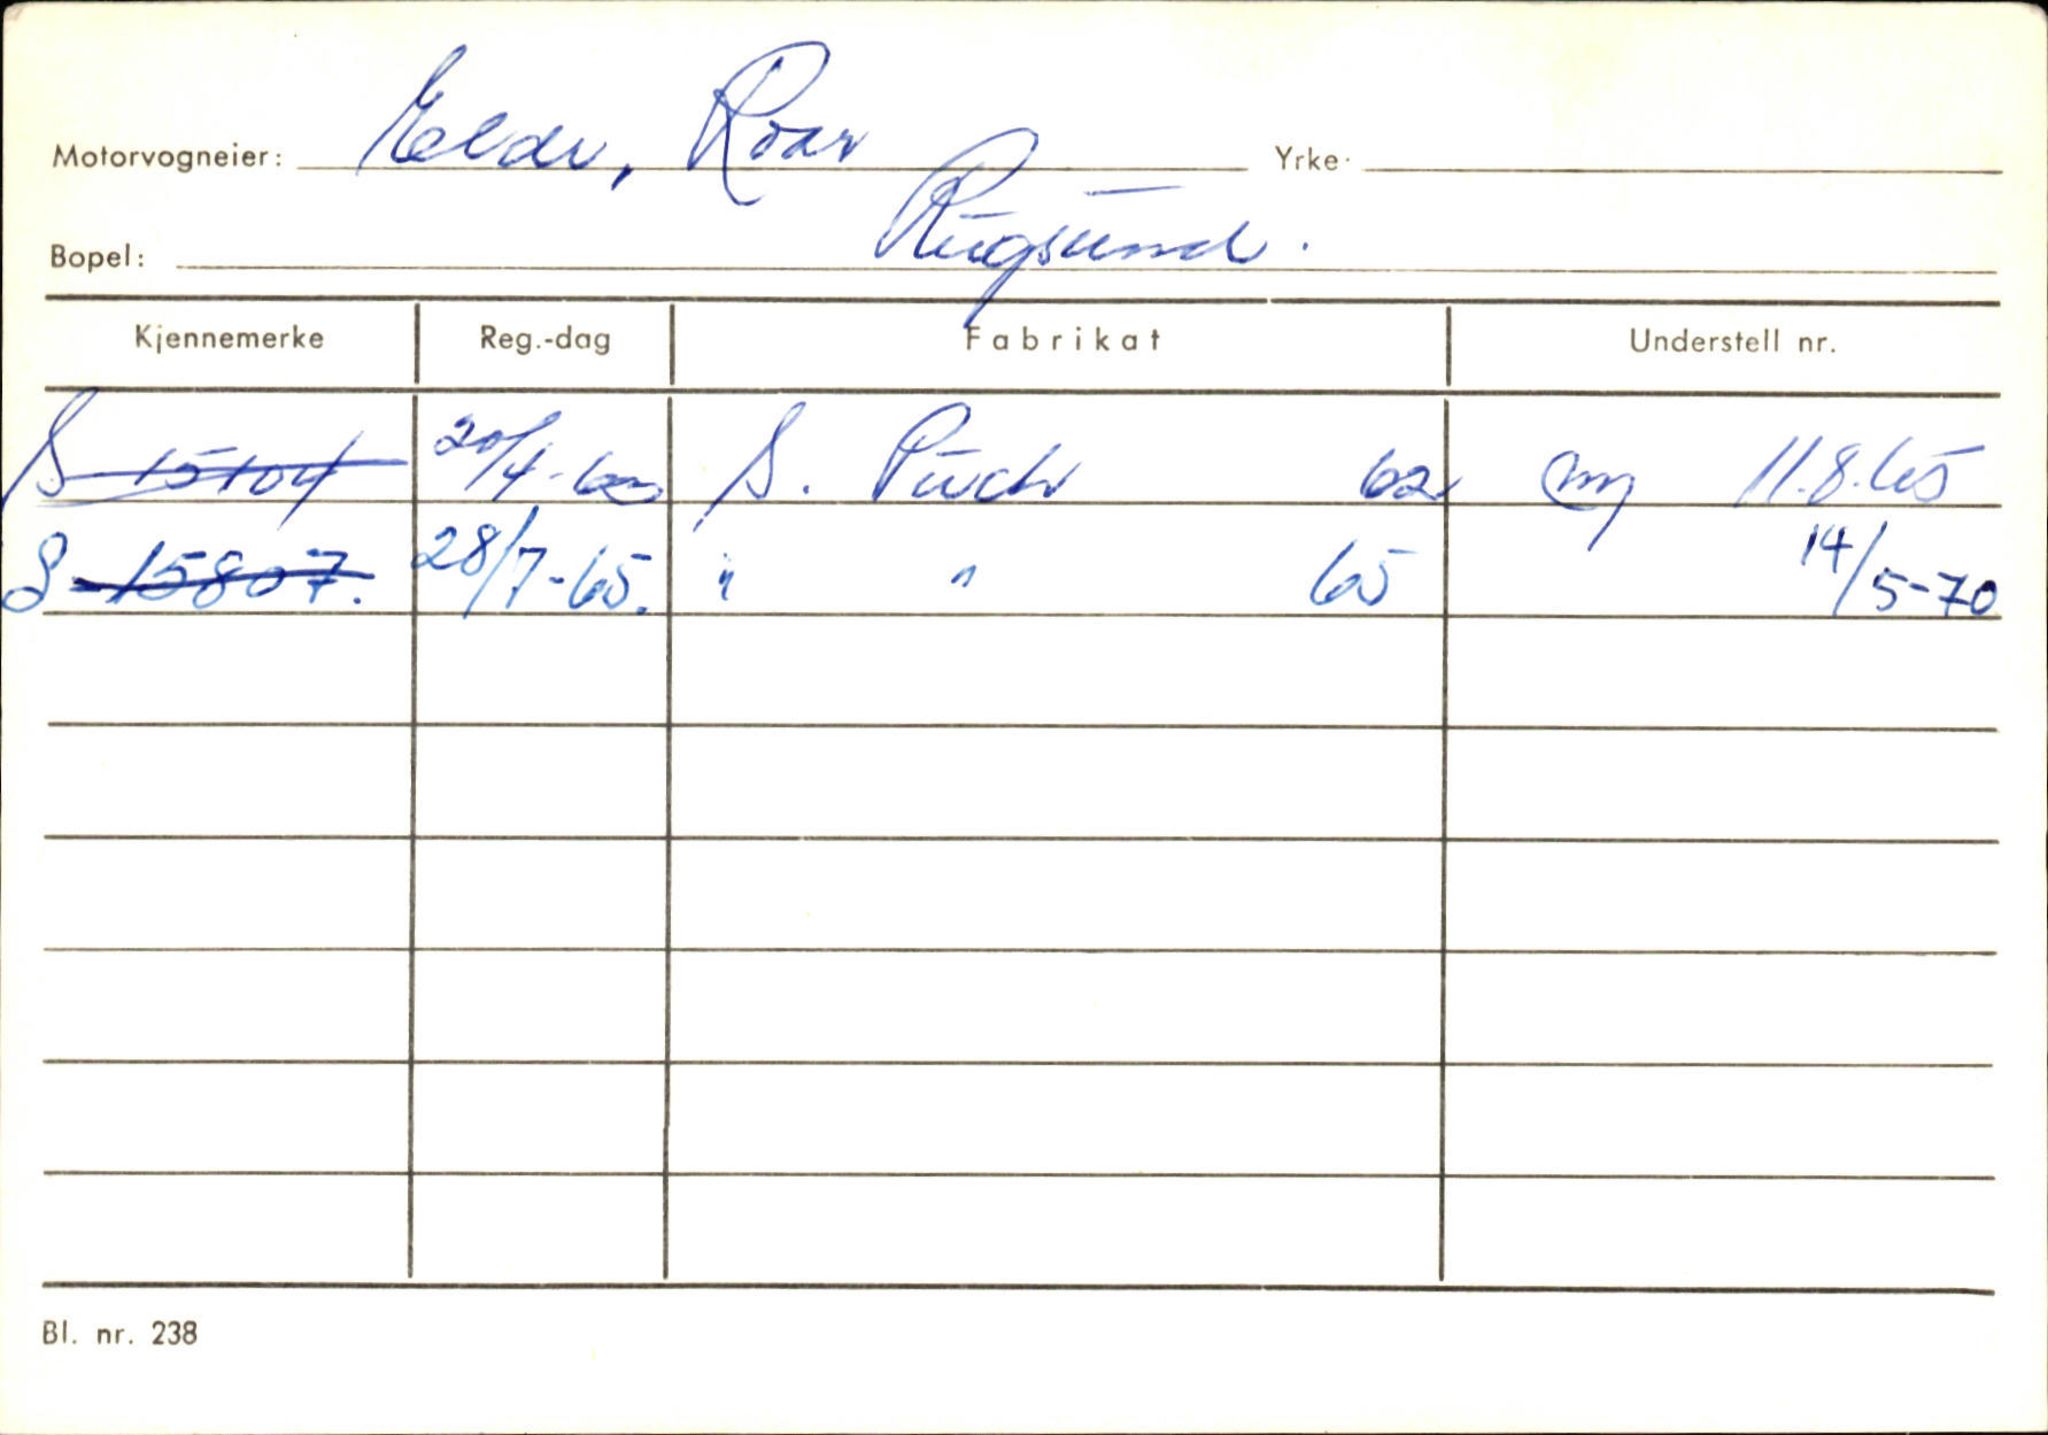 Motorvogneier: Elde, Roar Yrke:
Bopel: Rugsund.
Kjennemerke Reg.-dag Fabrikat Understell nr.
S-15104 20/4-62 S. Puch 62 11.8.65
S-15807. 28/7-65. " " 65 14/5-70
Bl. nr. 238